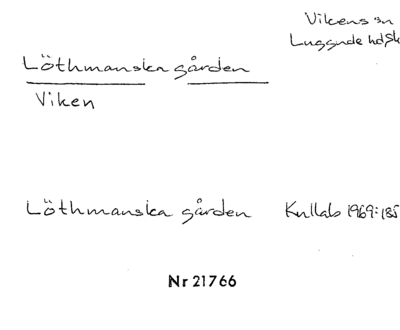 Vikens sn
Luggude hd, Sk
Löthmanska gården
Viken
Löthmanska gården Kullab 1969:185
Nr 21766